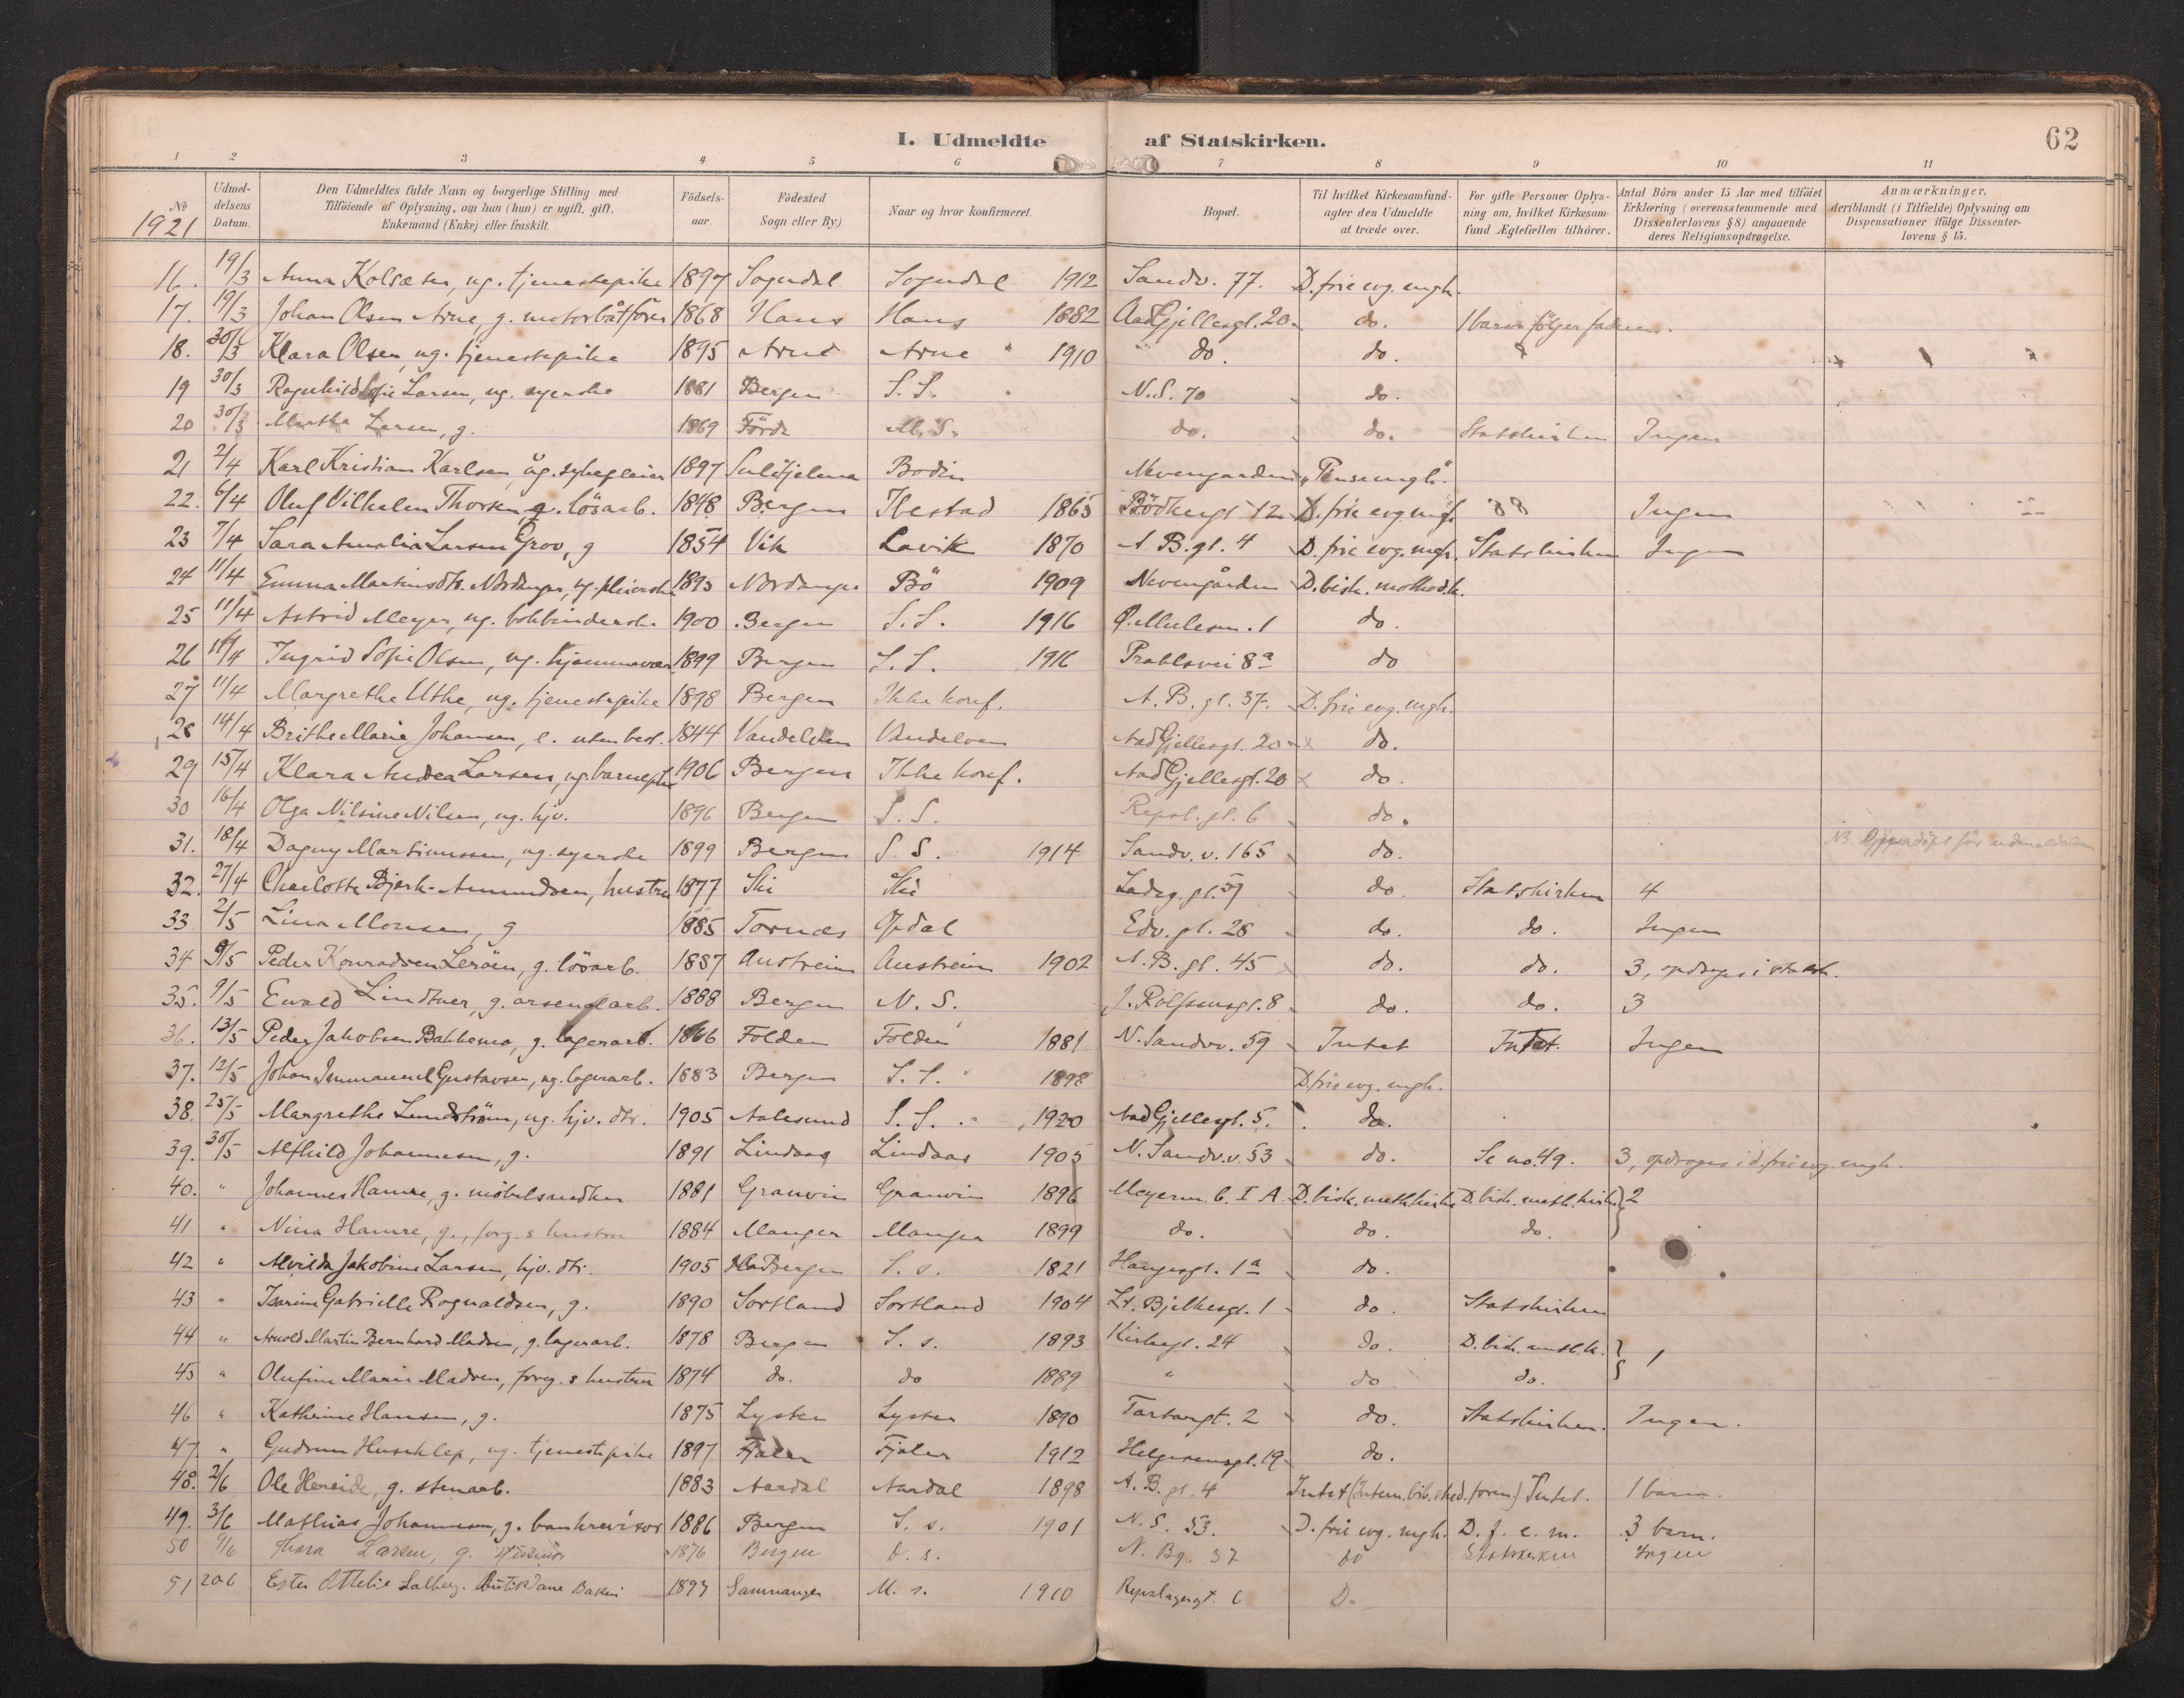 I. Udmeldte af Statskirken. 62
1 2 3 4 5 6 7 8 9 10 11
No 1921
Udmeldelsens Datum.
Den Udmeldtes fulde Navn og borgerlige Stilling med Tilföiende af Oplysning, om han (hun) er ugift, gift, Enkemand (Enke) eller fraskilt.
Födselsaar.
Födested Sogn eller By)
Naar og hvor konfirmeret.
Bopæl.
Til hvilket Kirkesamfund agter den Udmeldte at træde over.
For gifte Personer Oplysning om, hvilket Kirkesamfund Ægtefællen tilhörer.
Antal Börn under 15 Aar med tilföiet Erklæring (overensstemmende med Dissenterlovens § 8) angaaende deres Religionsopdragelse.
Anmærkninger, deriblandt (i Tilfælde) Oplysning om Dispensationer ifölge Dissenterlovens § 15.
16. 19/3 Anna Kolsæter, ug. tjenestepike 1897 Sogndal Sogndal 1912 Sandv. 77. D. frie evg. mgh.
17. 19/3 Johan Olsen Arne, g. motorbåtförer 1868 Haus Haus 1882 Aad Gjellesgt. 20 do. 1 barn fölger faderen.
18. 30/3 Klara Olsen, ug. tjenestepike 1895 Arne Arne 1910 do. do.
19 30/3 Ragnhild Sofie Larsen, ug. syerske 1881 Bergen S. S. N. S. 70 do.
20 30/3 Marthe Larsen, g. 1869 Förde M. S. do. do. Statskirken Ingen
21 2/4 Karl Kristian Karlsen, ug. sykepleier 1897 Sulitjelma Bodin Nevengaarden "Pinsemgh."
22. 6/4 Oluf Vilhelm Thorsen, g. lösarb. 1848 Bergen Ibestad 1865 Bödkergt 12 D. frie evg. mgh. do Ingen
23 7/4 Sara Amalia Larsen Grov, g 1854 Vik Lavik 1870 A. B. gt. 4 D. frie evg. mgh. Statskirken Ingen
24 11/4 Emma Martinsdtr. Nordanger, ug. pleierske 1895 Nordanger Bö 1909 Nevengården D. bisk. methodk.
25 11/4 Astrid Meyer, ug. bokbinderske 1900 Bergen S. S. 1916 Ö. Mulesm. 1 do.
26 11/4 Ingrid Sofie Olsen, ug. hjemmevær. 1899 Bergen S. S. 1916 Prahlsvei 8a do
27 11/4 Margrethe Uthe, ug. tjenestepike 1898 Bergen Ikke konf. A. B. gt. 37. D. frie evg. mgh.
28 14/4 Brithe Marie Johansen, e. uten besk. 1844 Vandelven Vandelven Aad Gjellesgt. 20 do.
29 15/4 Klara Andrea Larsen, ug. barnepike 1906 Bergen Ikke konf. Aad Gjellesgt. 20 do.
30 16/4 Olga Nilsine Nilsen, ug. hjv. 1896 Bergen S. S. Repsl. gt. 6 do.
31. 18/4 Dagny Martinussen, ug. syerske 1899 Bergen S. S. 1914 Sandv. v. 165 do. NB. Gjendöpt för udmeldelsen
32. 27/4 Charlotte Bjerk-Amundsen, hustru 1877 Ski Ski Ladeg. gt. 59 do. Statskirken 4
33 2/5 Lina Monsen, g 1885 Tornes Opdal Edv. gt. 28 do. do. Ingen
34 9/5 Peder Konradsen Leröen, g. lösarb. 1887 Austrein Austrein 1902 A. B. gt. 45 do. do. 3, opdrages i statsk.
35. 9/5 Ewald Lindtner, g. arsenalarb. 1888 Bergen N. S. J. Rolfsensgt. 8 do. do. 3
36. 13/5 Peder Jakobsen Bakkemo, g. lagerarb. 1866 Folden Folden 1881 N. Sandv. 59 Intet Intet. Ingen
37. 12/5 Johan Immanuel Gustavsen, ug. lagerarb. 1883 Bergen S. S. 1898 D. frie evg. mgh.
38. 25/5 Margrethe Lundström, ug. hjv. dtr. 1905 Aalesund S. S. 1920 Aad Gjellesgt. 5. do.
39. 30/5 Alfhild Johannesen, g. 1891 Lindaas Lindaas 1905 N. Sandv. v. 53 do. Se no. 49. 3, opdrages i d. frie evg. mgh.
40. " Johannes Hamre, g. möbelsnedker 1881 Granvin Granvin 1896 Meyerm. b. I A D. bisk. meth. kirke D. bisk. meth. kirke 2
41 " Nina Hamre, g., forg. s hustru 1884 Manger Manger 1899 do. do. do.
42 " Alvilda Jakobine Larsen, hjv. dtr. 1905 Bergen S. s. 1821 Haugesgt. 1a do.
43 " Isarine Gabrielle Rognaldsen, g. 1890 Sortland Sortland 1904 Lt. Bjelkesgt. 1 do. Statskirken
44 " Arnold Martin Bernhard Madsen, g. lagerarb. 1878 Bergen S. s. 1893 Kirkegt. 24 do. D. bisk. meth. k. 1
45 " Olufine Marie Madsen, forg. s hustru 1874 do. do 1889 " do do.
46 " Kathrine Hansen, g. 1875 Lyster Lyster 1890 Tartargt. 2 do. Statskirken. Ingen.
47. " Gudrun Huseklep, ug. tjenestepike 1897 Fjaler Fjaler 1912 Helgesensgt. 19 do.
48. 2/6 Ole Hereide, g. stenarb. 1883 Aardal Aardal 1898 A. B. gt. 4 Intet (Intern. bib. sked. foren.) Intet. 1 barn.
49. 3/6 Mathias Johannesen, g. bankrevisor 1886 Bergen S. s. 1901 N. S. 53. D. frie evg. mgh. D. f. e. m. 3 barn.
50 9/6 Thora Larsen, g. 1876 Bergen D. s. N. Bg. 37 do Statskirken Ingen
51 20 6 Ester Ottelie Salberg. Butikdame 1893 Samnanger M. s. 1910 Repslagergt. 6 D.